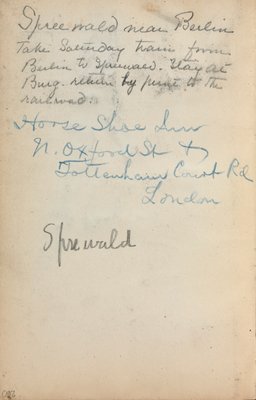 Spreewald near Berlin
Take Saturday train from
Berlin to Spreewald. Stay at
Burg. return by punt to the
railroad.
Horse Shoe Inn
N. Oxford St &
Tottenham Court Rd
London
Sprewald